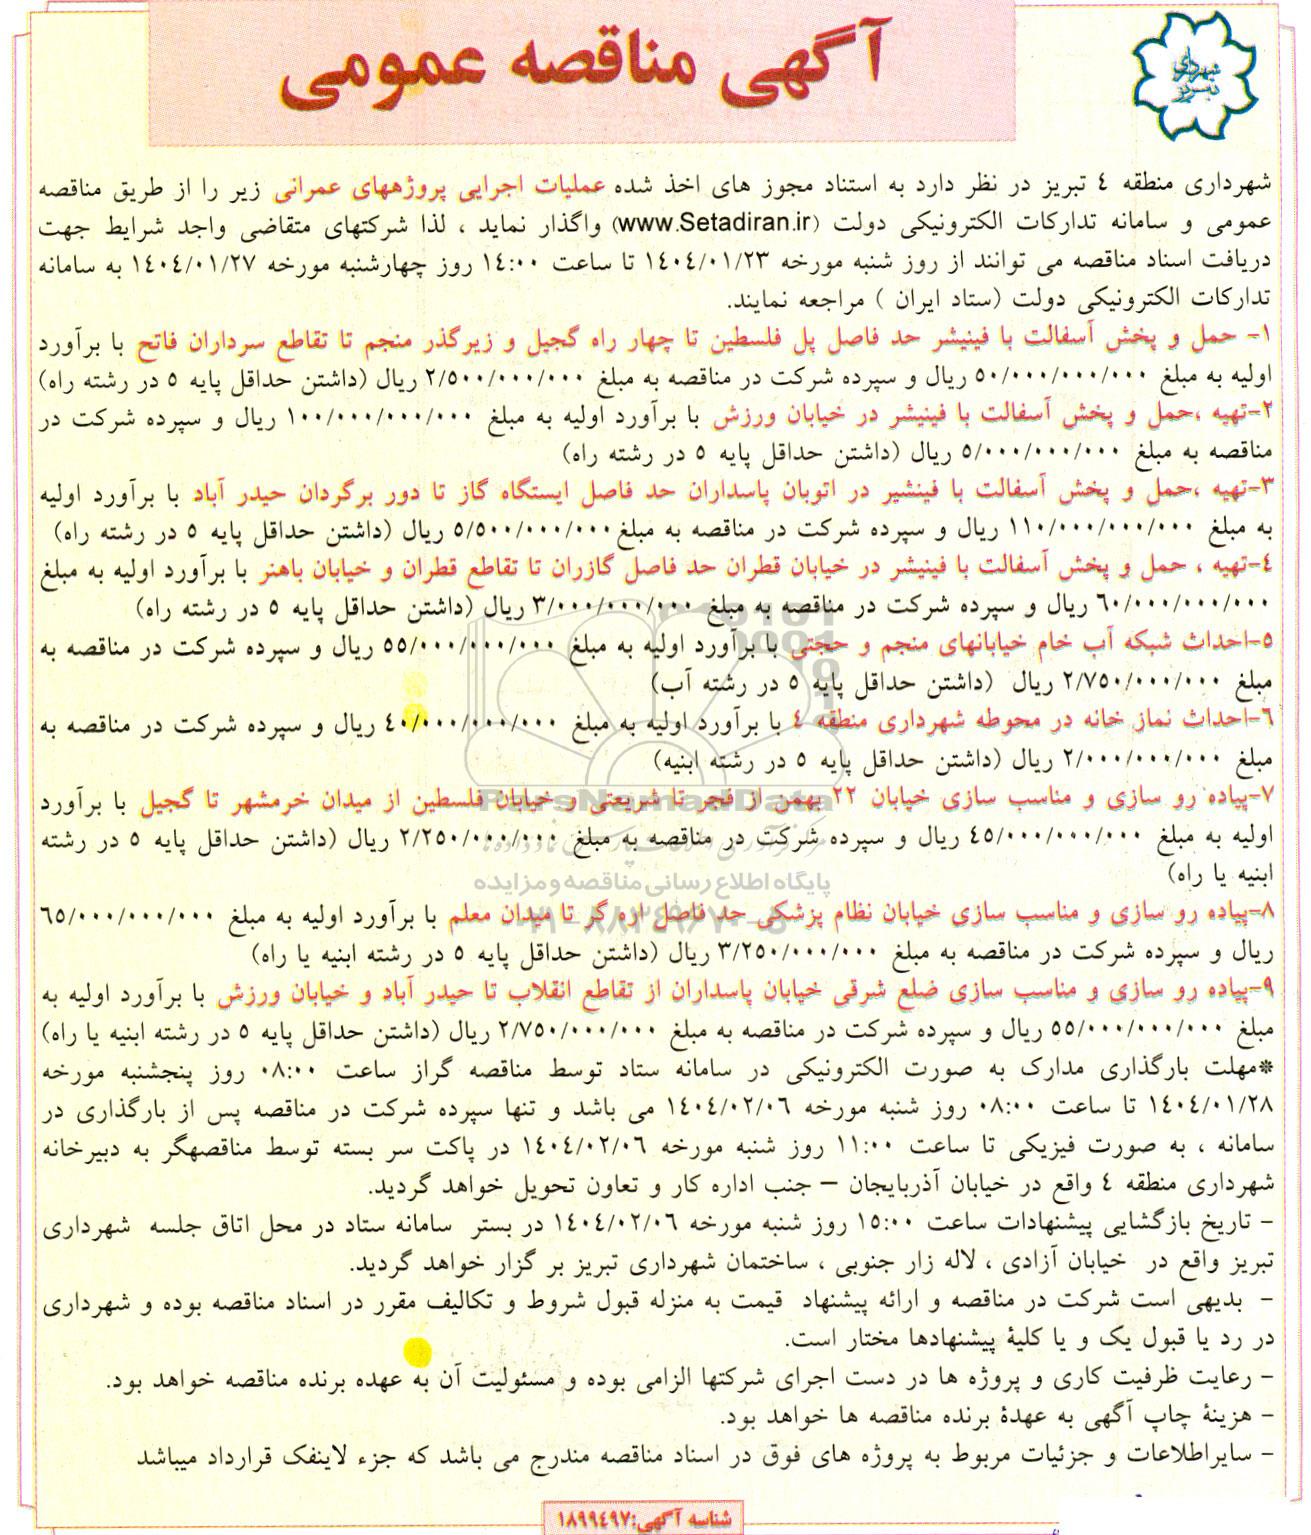 آگهی مناقصه عمومی
شهرداری تبریز
شهرداری منطقه ٤ تبریز در نظر دارد به استناد مجوز های اخذ شده عملیات اجرایی پروژههای عمرانی زیر را از طریق مناقصه
عمومی و سامانه تدارکات الکترونیکی دولت (www.Setadiran.ir) واگذار نماید ، لذا شرکتهای متقاضی واجد شرایط جهت
دریافت اسناد مناقصه می توانند از روز شنبه مورخه ١٤٠٤/٠١/٢٣ تا ساعت ١٤:٠٠ روز چهارشنبه مورخه ١٤٠٤/٠١/٢٧ به سامانه
تدارکات الکترونیکی دولت (ستاد ایران ) مراجعه نمایند.
١- حمل و پخش آسفالت با فینیشر حد فاصل پل فلسطین تا چهار راه گجیل و زیرگذر منجم تا تقاطع سرداران فاتح با برآورد
اولیه به مبلغ ٥٠/٠٠٠/٠٠٠/٠٠٠ ریال و سپرده شرکت در مناقصه به مبلغ ٢/٥٠٠/٠٠٠/٠٠٠ ریال (داشتن حداقل پایه ٥ در رشته راه)
٢-تهیه ،حمل و پخش آسفالت با فینیشر در خیابان ورزش با برآورد اولیه به مبلغ ١٠٠/٠٠٠/٠٠٠/٠٠٠ ریال و سپرده شرکت در
مناقصه به مبلغ ٥/٠٠٠/٠٠٠/٠٠٠ ریال (داشتن حداقل پایه ٥ در رشته راه)
٣-تهیه ،حمل و پخش آسفالت با فینشیر در اتوبان پاسداران حد فاصل ایستگاه گاز تا دور برگردان حیدر آباد با برآورد اولیه
به مبلغ ١١٠/٠٠٠/٠٠٠/٠٠٠ ریال و سپرده شرکت در مناقصه به مبلغ٥/٥٠٠/٠٠٠/٠٠٠ ریال (داشتن حداقل پایه ٥ در رشته راه)
٤-تهیه ، حمل و پخش آسفالت با فینیشر در خیابان قطران حد فاصل گازران تا تقاطع قطران و خیابان باهنر با برآورد اولیه به مبلغ
٦٠/٠٠٠/٠٠٠/٠٠٠ ریال و سپرده شرکت در مناقصه به مبلغ ٣/٠٠٠/٠٠٠/٠٠٠ ریال (داشتن حداقل پایه ٥ در رشته راه)
٥-احداث شبکه آب خام خیابانهای منجم و حجتی با برآورد اولیه به مبلغ ٥٥/٠٠٠/٠٠٠/٠٠٠ ریال و سپرده شرکت در مناقصه به
مبلغ ٢/٧٥٠/٠٠٠/٠٠٠ ریال (داشتن حداقل پایه ٥ در رشته آب)
٦-احداث نماز خانه در محوطه شهرداری منطقه ٤ با برآورد اولیه به مبلغ ٤٠/٠٠٠/٠٠٠/٠٠٠ ریال و سپرده شرکت در مناقصه به
مبلغ ٢/٠٠٠/٠٠٠/٠٠٠ ریال (داشتن حداقل پایه ٥ در رشته ابنیه)
٧-پیاده رو سازی و مناسب سازی خیابان ٢٢ بهمن از فجر تا شریعتی و خیابان فلسطین از میدان خرمشهر تا گجیل با برآورد
ParsNamadData
اولیه به مبلغ ٤٥/٠٠٠/٠٠٠/٠٠٠ ریال و سپرده شرکت در مناقصه به مبلغ ٢/٢٥٠/٠٠٠/٠٠٠ ریال (داشتن حداقل پایه ٥ در رشته
ابنیه یا راه)
پایگاه اطلاع رسانی مناقصه و مزایده
٨-پیاده رو سازی و مناسب سازی خیابان نظام پزشکی حد فاصل اره گر تا میدان معلم با برآورد اولیه به مبلغ ٦٥/٠٠٠/٠٠٠/٠٠٠
۰۲۱-۸۸۳۴۹۶۷۰-۵
ریال و سپرده شرکت در مناقصه به مبلغ ٣/٢٥٠/٠٠٠/٠٠٠ ریال (داشتن حداقل پایه ٥ در رشته ابنیه یا راه)
٩-پیاده رو سازی و مناسب سازی ضلع شرقی خیابان پاسداران از تقاطع انقلاب تا حیدر آباد و خیابان ورزش با برآورد اولیه به
مبلغ ٥٥/٠٠٠/٠٠٠/٠٠٠ ریال و سپرده شرکت در مناقصه به مبلغ ٢/٧٥٠/٠٠٠/٠٠٠ ریال (داشتن حداقل پایه ٥ در رشته ابنیه یا راه)
*مهلت بارگذاری مدارک به صورت الکترونیکی در سامانه ستاد توسط مناقصه گراز ساعت ٠٨:٠٠ روز پنجشنبه مورخه
١٤٠٤/٠١/٢٨ تا ساعت ٠٨:٠٠ روز شنبه مورخه ١٤٠٤/٠٢/٠٦ می باشد و تنها سپرده شرکت در مناقصه پس از بارگذاری در
سامانه ، به صورت فیزیکی تا ساعت ١١:٠٠ روز شنبه مورخه ١٤٠٤/٠٢/٠٦ در پاکت سر بسته توسط مناقصهگر به دبیرخانه
شهرداری منطقه ٤ واقع در خیابان آذربایجان – جنب اداره کار و تعاون تحویل خواهد گردید.
- تاریخ بازگشایی پیشنهادات ساعت ١٥:٠٠ روز شنبه مورخه ١٤٠٤/٠٢/٠٦ در بستر سامانه ستاد در محل اتاق جلسه شهرداری
تبریز واقع در خیابان آزادی ، لاله زار جنوبی ، ساختمان شهرداری تبریز بر گزار خواهد گردید.
- بدیهی است شرکت در مناقصه و ارائه پیشنهاد قیمت به منزله قبول شروط و تکالیف مقرر در اسناد مناقصه بوده و شهرداری
در رد یا قبول یک و یا کلیۀ پیشنهادها مختار است.
- رعایت ظرفیت کاری و پروژه ها در دست اجرای شرکتها الزامی بوده و مسئولیت آن به عهده برنده مناقصه خواهد بود.
- هزینۀ چاپ آگهی به عهدۀ برنده مناقصه ها خواهد بود.
- سایراطلاعات و جزئیات مربوط به پروژه های فوق در اسناد مناقصه مندرج می باشد که جزء لاینفک قرارداد میباشد
شناسه آگهی:١٨٩٩٤٩٧